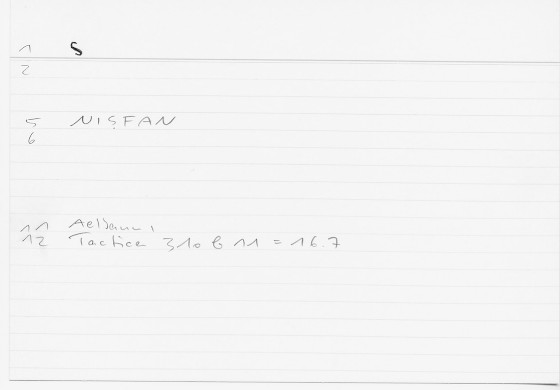 1 S
2
5 NIṢFAN
6
11 Aeliani
12 Tactica 310 b 11 = 16.7